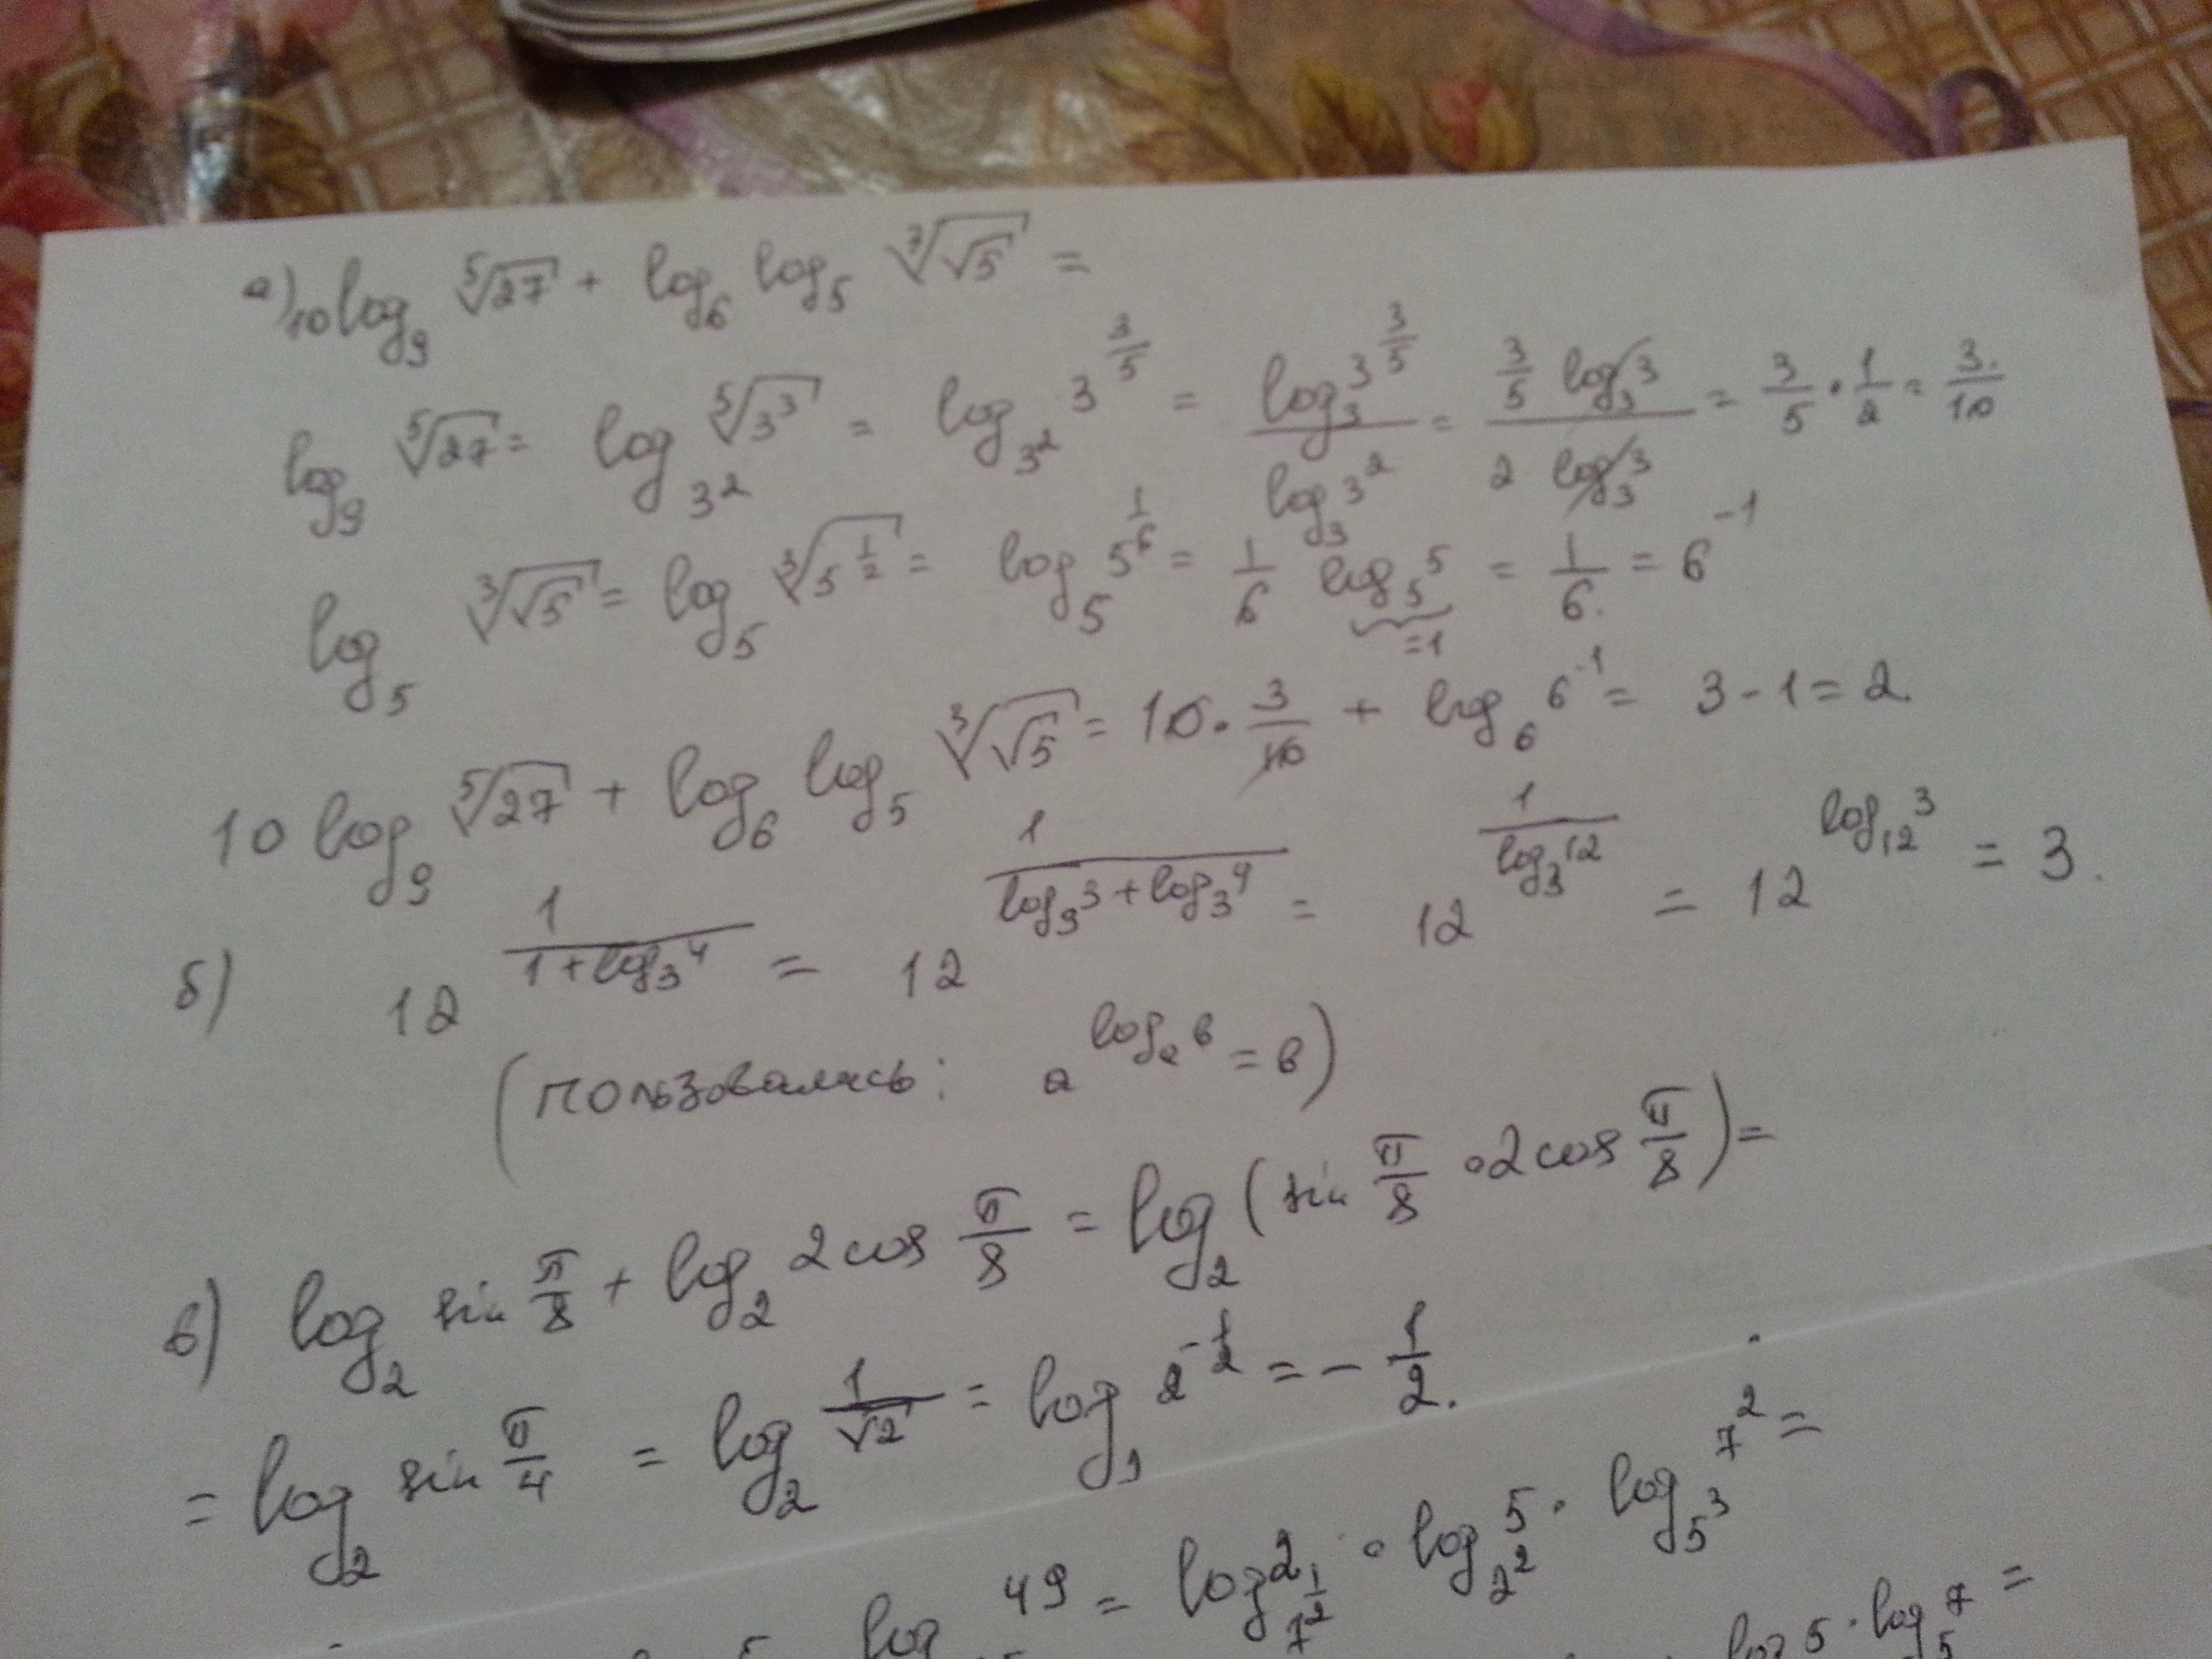 а) 10 log₉ ⁵√27 + log₆ log₅ ⁷√√5 =
log₉ ⁵√27 = log_{3²} ⁵√3³ = log_{3²} 3^{3/5} = (log₃ 3^{3/5})/(log₃ 3²) = (3/5 log₃ 3)/(2 log₃ 3) = 3/5 · 1/2 = 3/10
log₅ ³√√5 = log₅ ³√5^{1/2} = log₅ 5^{1/6} = 1/6 log₅ 5 = 1/6 = 6^{-1}
=1
10 log₉ ⁵√27 + log₆ log₅ ³√√5 = 10 · 3/10 + log₆ 6^{-1} = 3 - 1 = 2
б) 12^{1/(1+log₃4)} = 12^{1/(log₃3+log₃4)} = 12^{1/log₃12} = 12^{log₁₂3} = 3.
(пользовалась: a^{logₐ b} = b)
в) log₂ sin π/8 + log₂ 2 cos π/8 = log₂ (sin π/8 · 2 cos π/8) =
= log₂ sin π/4 = log₂ 1/√2 = log₂ 2^{-1/2} = - 1/2.
log 49 = log_{7^{1/2}} 2 · log_{2²} 5 · log_{5³} 7² =
log 5 · log₅ 7 =